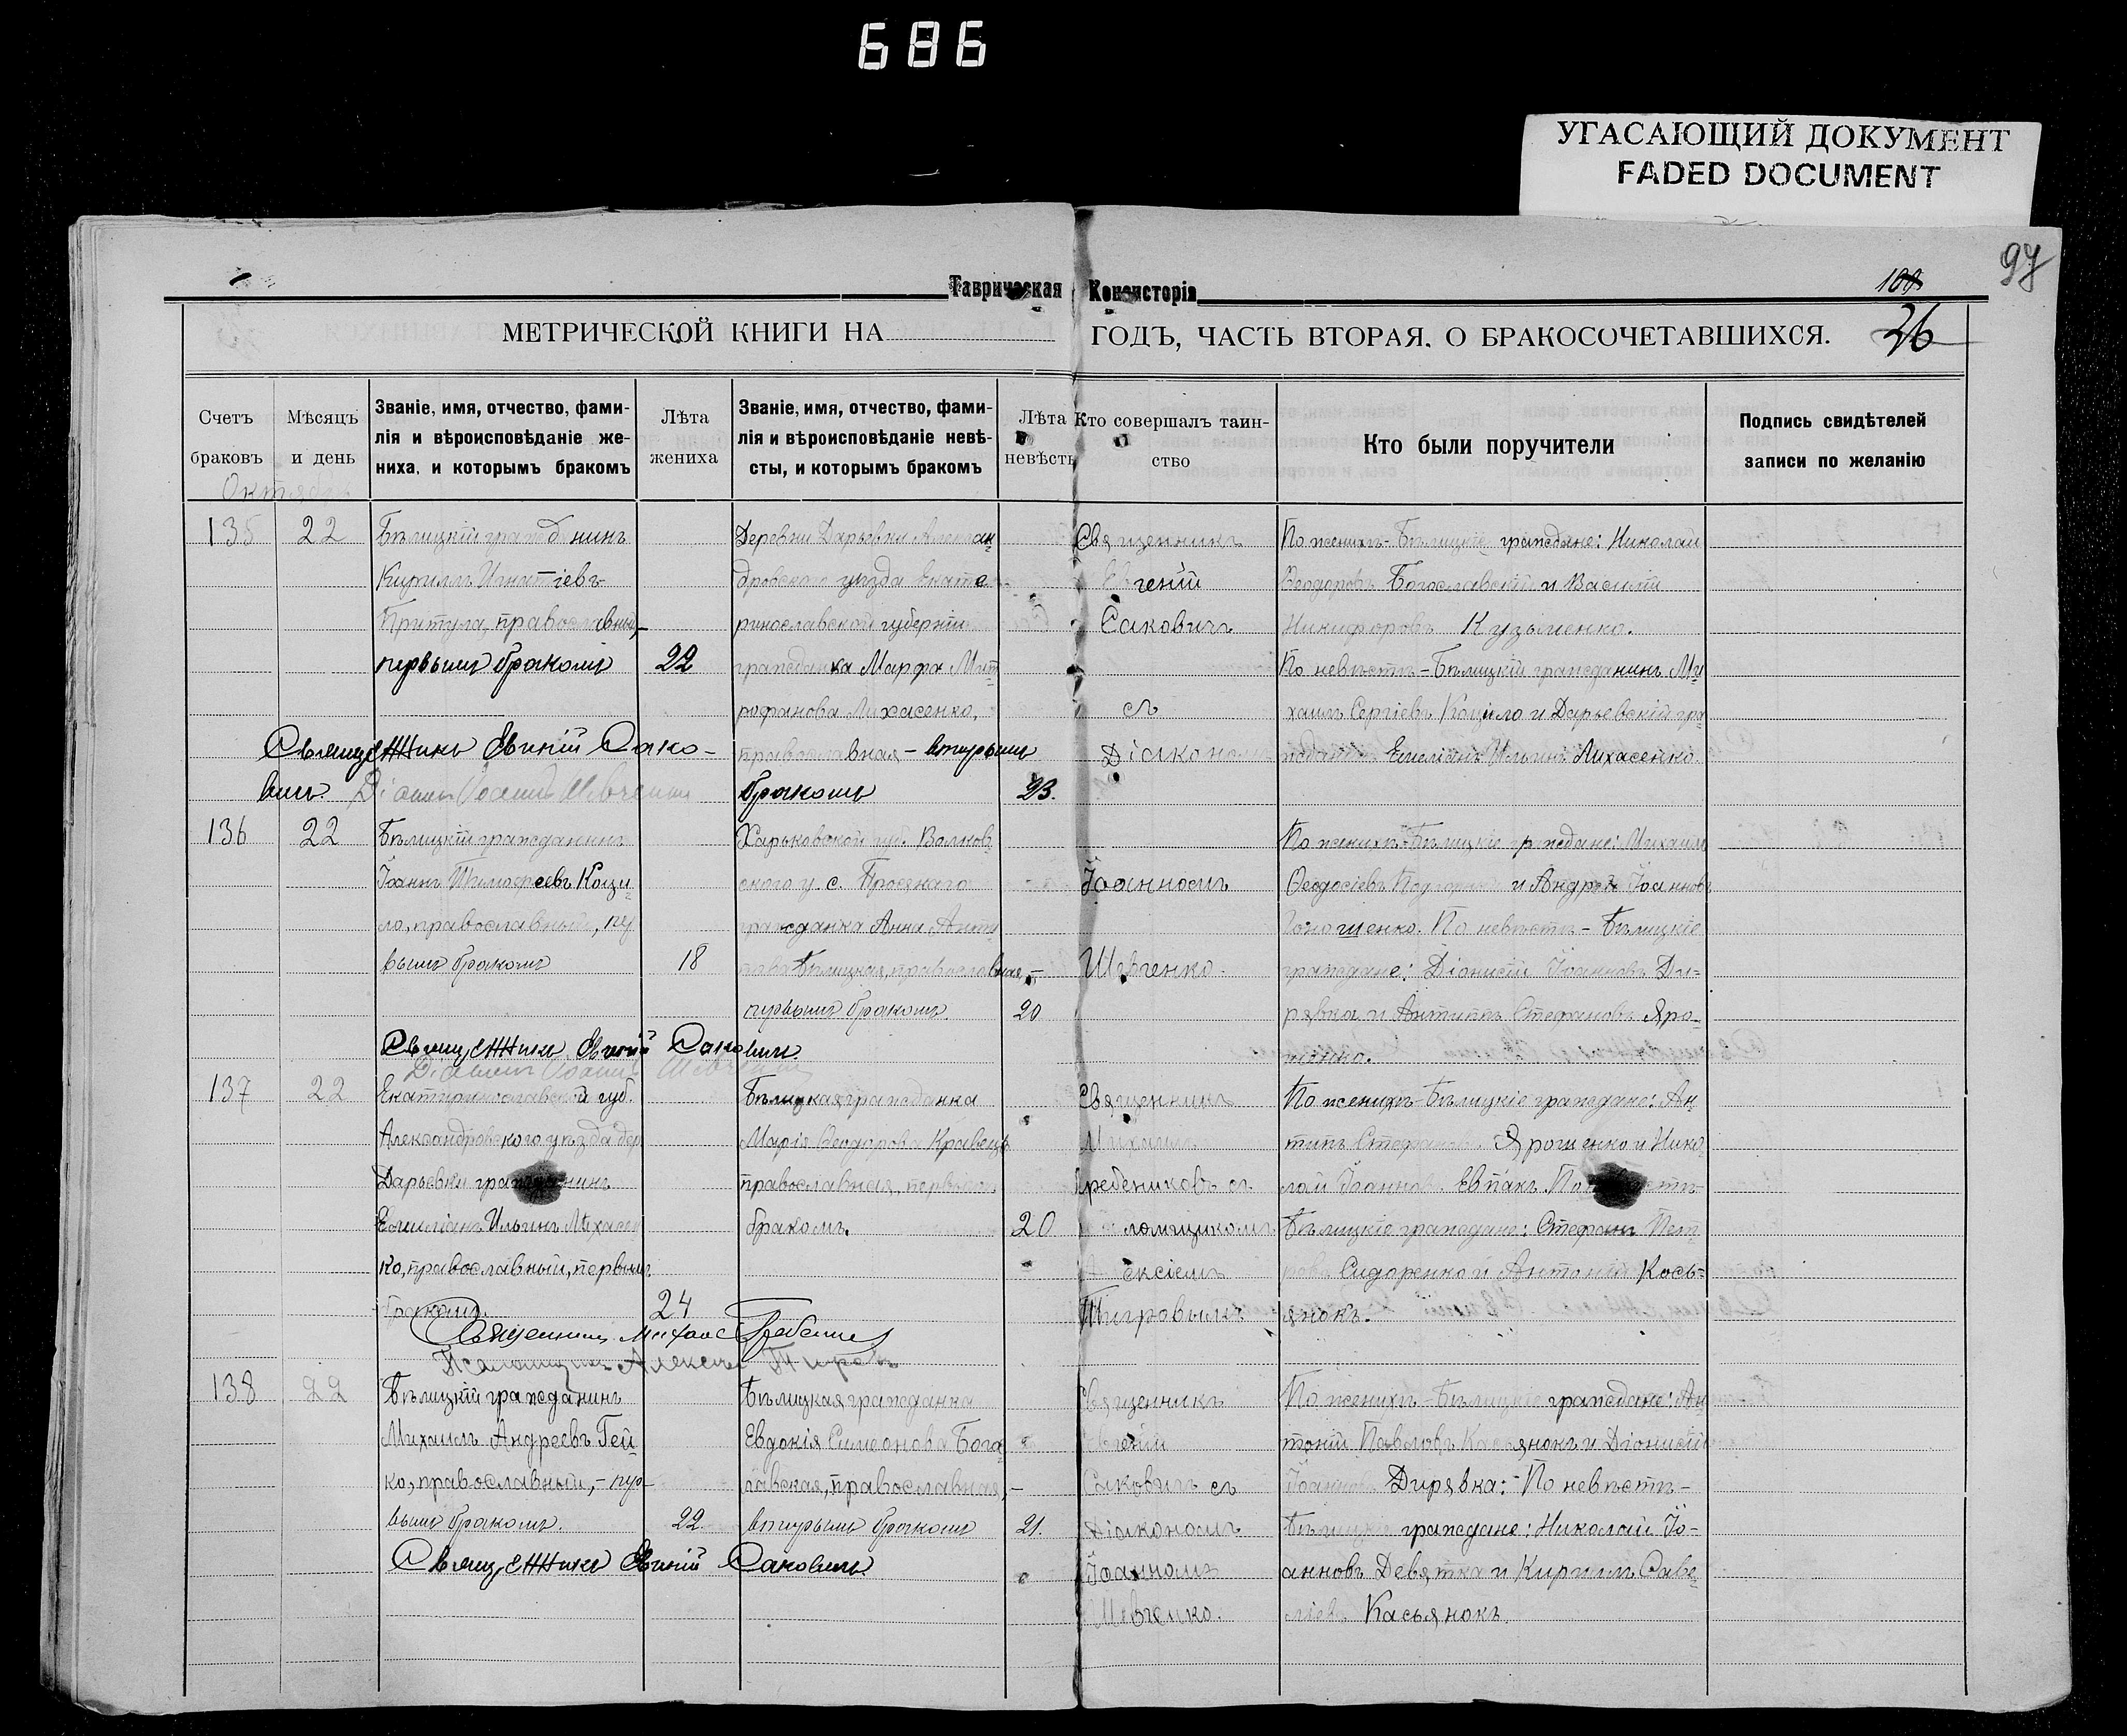 686
УГАСАЮЩИЙ ДОКУМЕНТ
FADED DOCUMENT
97
Таврическая Консисторія
109
МЕТРИЧЕСКОЙ КНИГИ НА ГОДЪ, ЧАСТЬ ВТОРАЯ, О БРАКОСОЧЕТАВШИХСЯ.
36
Счетъ браковъ
Мѣсяцъ и день
Званіе, имя, отчество, фами-
лія и вѣроисповѣданіе же-
ниха, и которымъ бракомъ
Лѣта жениха
Званіе, имя, отчество, фами-
лія и вѣроисповѣданіе невѣ-
сты, и которымъ бракомъ
Лѣта невѣсты
Кто совершалъ таин-
ство
Кто были поручители
Подпись свидѣтелей
записи по желанію
Октября
135
22
Бѣлицкій гражданинъ
Кириллъ Игнатіевъ
Притула, православный,
первымъ бракомъ
22
Священникъ Евгеній Сако-
вичъ. Діаконъ Іоаннъ Шевченко
Деревни Дарьевки Алексан-
дровскаго уѣзда Екате-
ринославской губерніи
гражданка Марфа Мит-
рофанова Лихасенко,
православная - вторымъ
бракомъ
23.
Священникъ
Евгеній
Саковичъ
съ
Діакономъ
По женихѣ - Бѣлицкіе граждане: Николай
Ѳеодоровъ Богославскій и Василій
Никифоровъ Кузьменко.
По невѣстѣ - Бѣлицкій гражданинъ Ми-
хаилъ Сергіевъ Коцило и Дарьевскій гра-
жданинъ Емиліанъ Ильинъ Лихасенко.
136
22
Бѣлицкій гражданинъ
Іоаннъ Тимоѳеевъ Коци-
ло, православный, пер
вымъ бракомъ
18
Священникъ Евгеній Саковичъ.
Діаконъ Іоаннъ Шевченко
Харьковской губ. Валков-
скаго у. с.
гражданка Анна
Бѣлицкая, православная, -
первымъ бракомъ.
20
Іоанномъ
Шевченко.
По женихѣ - Бѣлицкіе граждане: Михаилъ
Ѳеодосіевъ и Андрей Іоанновъ
По невѣстѣ - Бѣлицкіе
граждане: Діонисій Іоанновъ Ди-
рявка и Антипъ Стефановъ Яро-
шенко.
137
22
Екатеринославской губ.
Александровскаго уѣзда дер
Дарьевки гражданинъ
Емиліанъ Ильинъ Лихасен
ко, православный, первымъ
бракомъ.
24
Священникъ Михаилъ Гребениковъ
Псаломщикъ Алексѣй Тигровъ
Бѣлицкая гражданка
Марія Ѳеодорова Кравецъ
православная, первымъ
бракомъ.
20
Священникъ
Михаилъ
Гребениковъ съ
псаломщикомъ
Алексіемъ
Тигровымъ
По женихѣ - Бѣлицкіе граждане: Ан-
типъ Стефановъ Ярошенко и Нико-
лай Іоанновъ Евпакъ. По невѣстѣ
Бѣлицкіе граждане: Стефанъ Пет-
ровъ Сидоренко и Антоній Кось-
янокъ.
138
22
Бѣлицкій гражданинъ
Михаилъ Андреевъ Гей-
ко, православный, - пер-
вымъ бракомъ.
22.
Священникъ Евгеній Саковичъ
Бѣлицкая гражданка
Евдокія Симеонова Бога-
славская, православная, -
вторымъ бракомъ
21.
Священникъ
Евгеній
Саковичъ съ
Діакономъ
Іоанномъ
Шевченко.
По женихѣ - Бѣлицкіе граждане: Ан-
тоній Павловъ Касьянокъ и Діонисій
Іоанновъ Дирявка: - По невѣстѣ -
Бѣлицкіе граждане: Николай Іо-
анновъ Девятка и Кириллъ Саве-
ліевъ Касьянокъ.